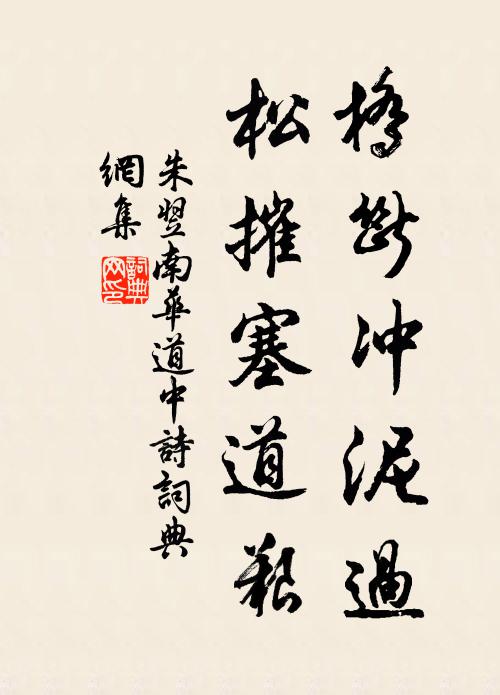 橋斷冲泥過
松摧塞道艱
朱翌南華道中詩詞典
網集
詞典
网印